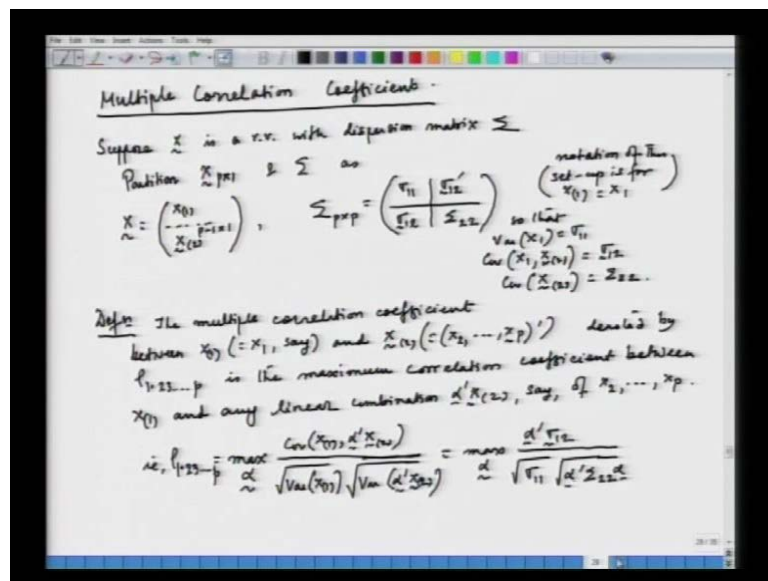 File Edit View Insert Actions Tools Help
Multiple Correlation Coefficient.
Suppose x̰ is a r.v. with dispersion matrix Σ
Partition x̰ p×1 & Σ as
x̰ = (x(1) / x̰(2) p-1×1), Σp×p = (σ11 | σ̰12' / σ̰12 | Σ22)
(notation of this set-up is for x(1) = x1)
so that
Var(x1) = σ11
Cov(x1, x̰(2)) = σ̰12
Cov(x̰(2)) = Σ22.
Defn The multiple correlation coefficient
between x(1) (= x1, say) and x̰(2) (= (x2, ..., xp)') denoted by
ρ1·23...p is the maximum correlation coefficient between
x(1) and any linear combination α̰'x̰(2), say, of x2, ..., xp.
ie, ρ1·23...p = max α̰ Cov(x(1), α̰'x̰(2)) / √Var(x(1)) √Var(α̰'x̰(2)) = max α̰ α̰'σ̰12 / √σ11 √α̰'Σ22α̰